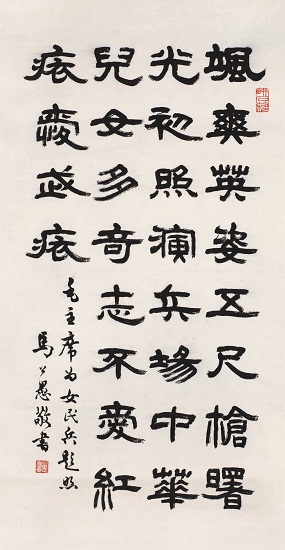 颯爽英姿五尺槍曙
光初照演兵場中華
兒女多奇志不愛紅
裝愛武裝
毛主席为女民兵題照
馬公愚敬書